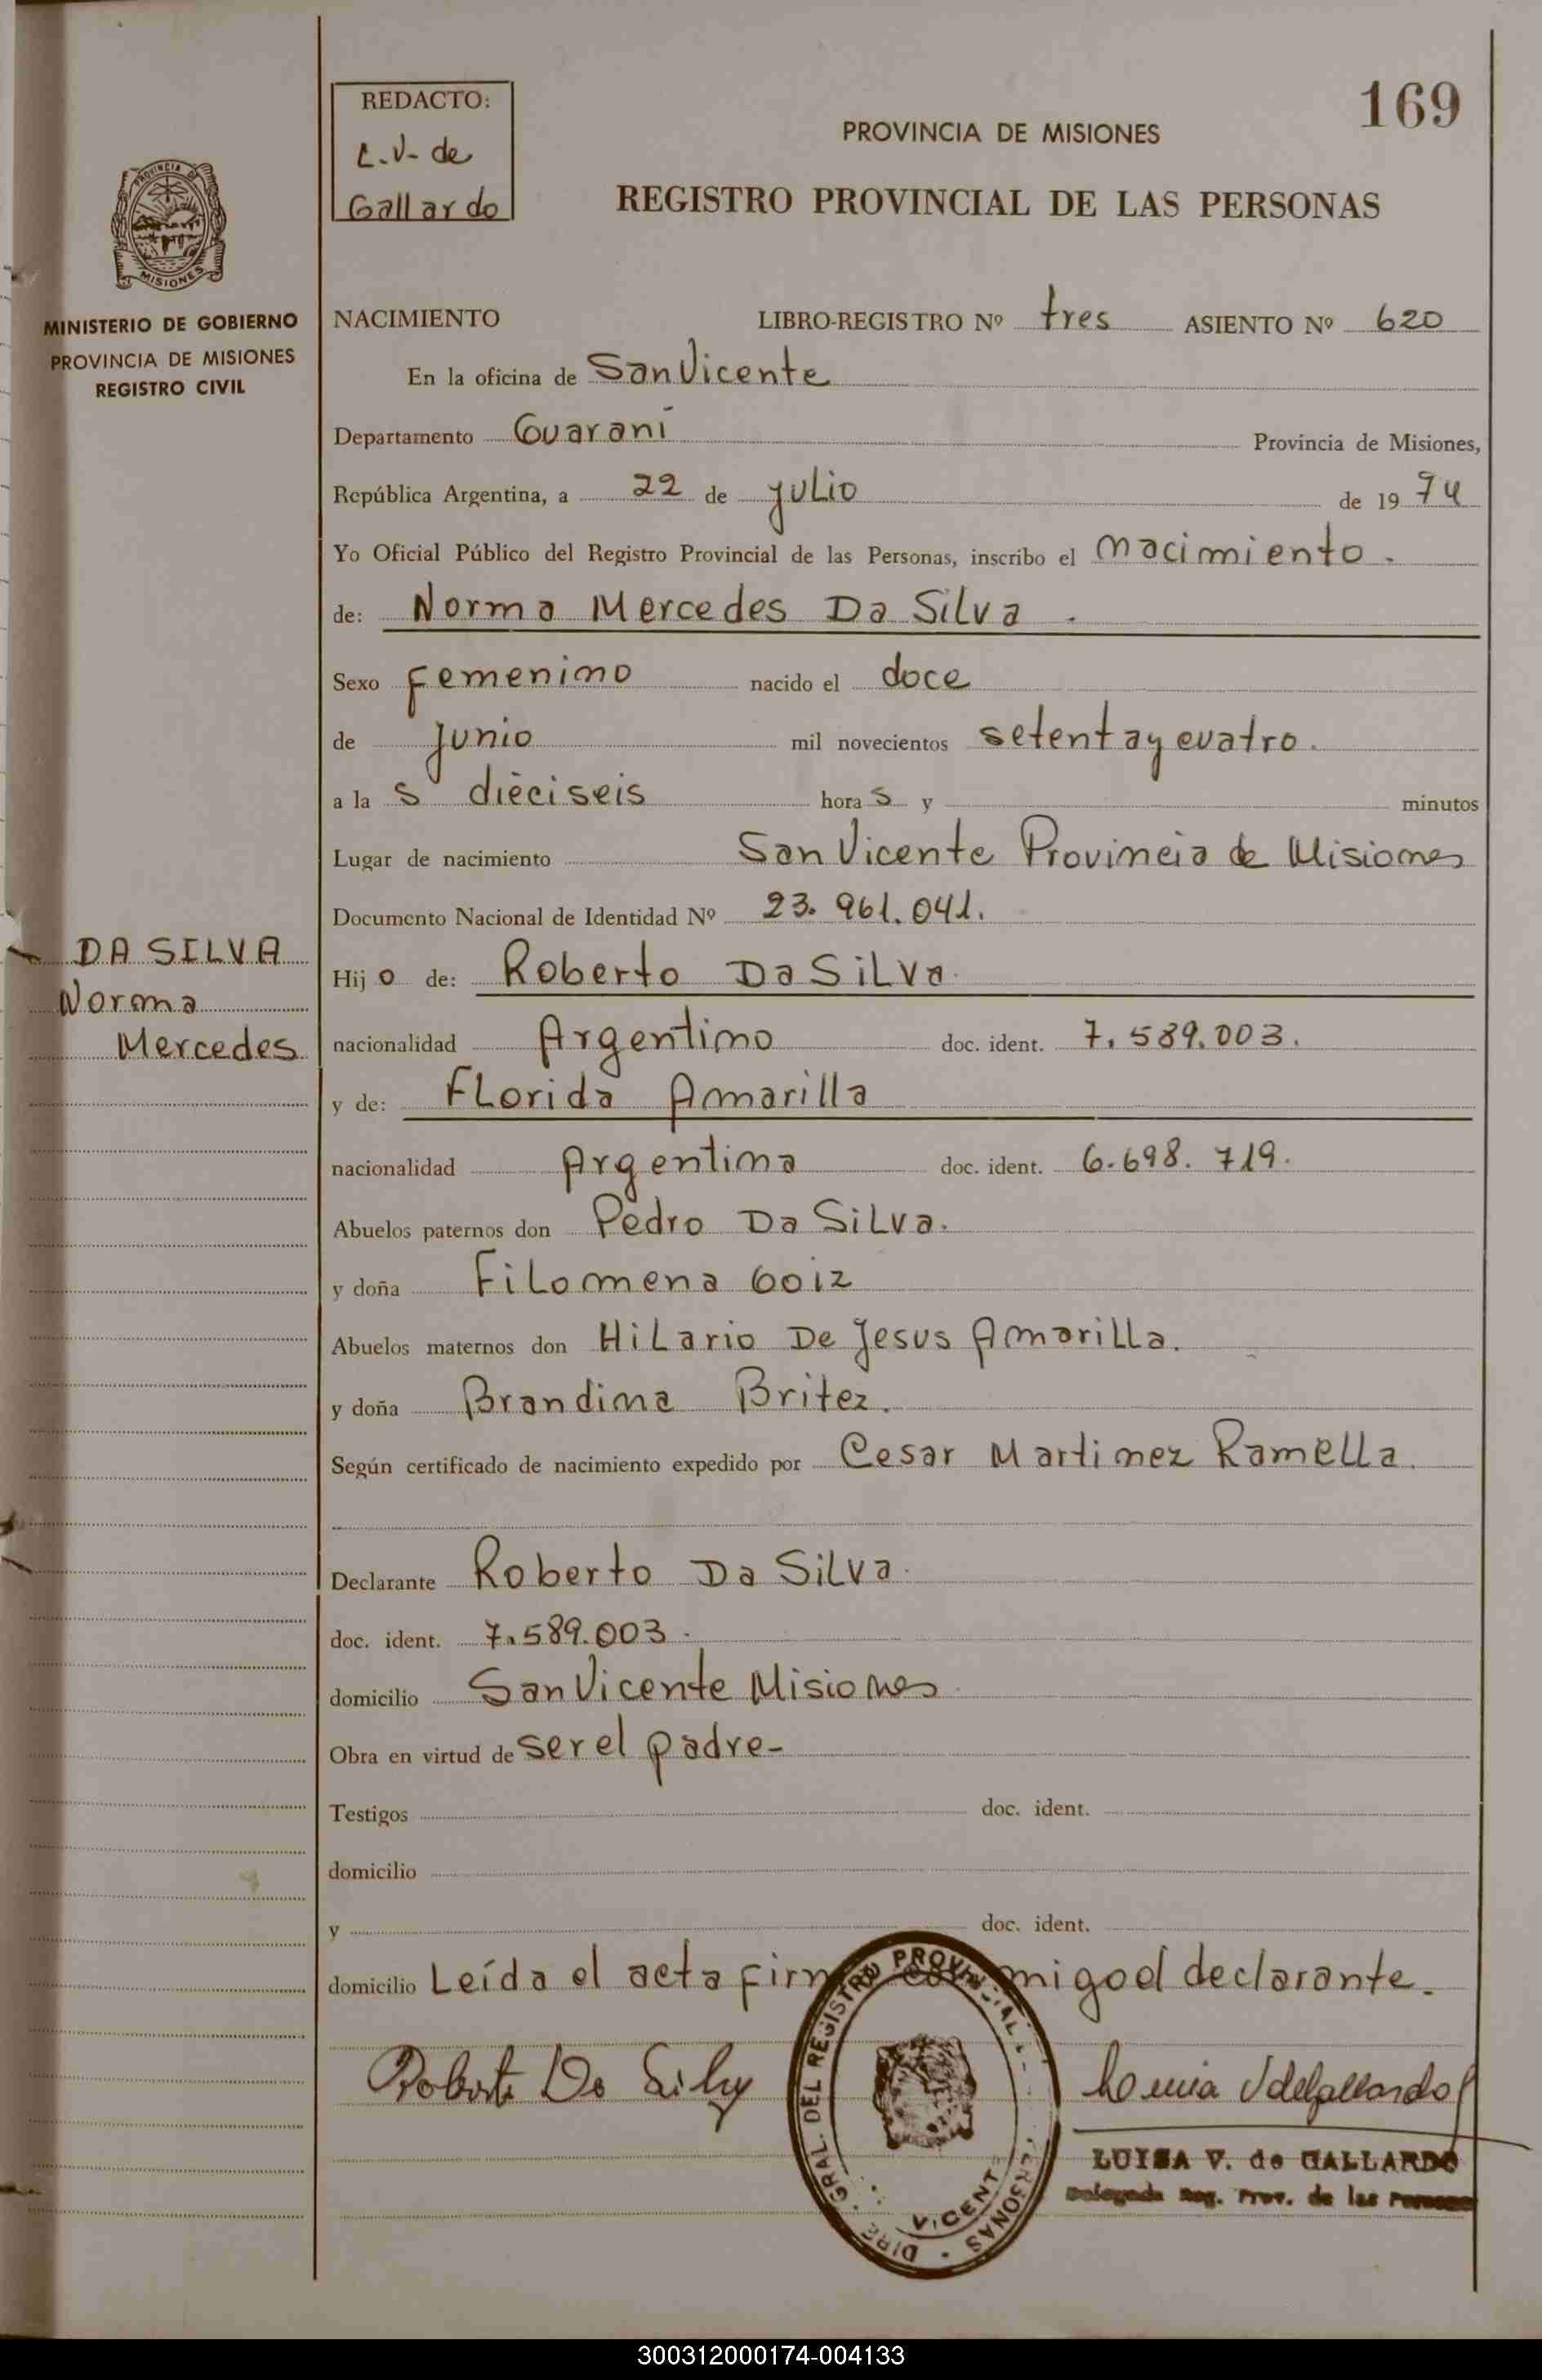 169
REDACTO:
L.V. de
Gallardo
PROVINCIA DE MISIONES
REGISTRO PROVINCIAL DE LAS PERSONAS
PROVINCIA DE
MISIONES
MINISTERIO DE GOBIERNO
PROVINCIA DE MISIONES
REGISTRO CIVIL
NACIMIENTO LIBRO-REGISTRO Nº tres ASIENTO Nº 620
En la oficina de San Vicente
Departamento Guaraní Provincia de Misiones,
República Argentina, a 22 de julio de 1974
Yo Oficial Público del Registro Provincial de las Personas, inscribo el nacimiento.
de: Norma Mercedes Da Silva.
Sexo femenino nacido el doce
de junio mil novecientos setenta y cuatro.
a la s dieciseis hora s y minutos
Lugar de nacimiento San Vicente Provincia de Misiones
Documento Nacional de Identidad Nº 23.961.041.
DA SILVA
Norma
Mercedes
Hij o de: Roberto Da Silva.
nacionalidad Argentino doc. ident. 7.589.003.
y de: Florida Amarilla
nacionalidad Argentina doc. ident. 6.698.719.
Abuelos paternos don Pedro Da Silva.
y doña Filomena Goiz
Abuelos maternos don Hilario De Jesus Amarilla.
y doña Brandina Britez.
Según certificado de nacimiento expedido por Cesar Martinez Ramella.
Declarante Roberto Da Silva.
doc. ident. 7.589.003.
domicilio San Vicente Misiones.
Obra en virtud de ser el padre-
Testigos doc. ident.
domicilio
y doc. ident.
domicilio Leída el acta firma conmigo el declarante.
Roberto Da Silva
DIRE. GRAL. DEL REGISTRO PROVINCIAL PERSONAS
VICENTE
LUISA V. de GALLARDO
Delegada Reg. Prov. de las Personas
300312000174-004133